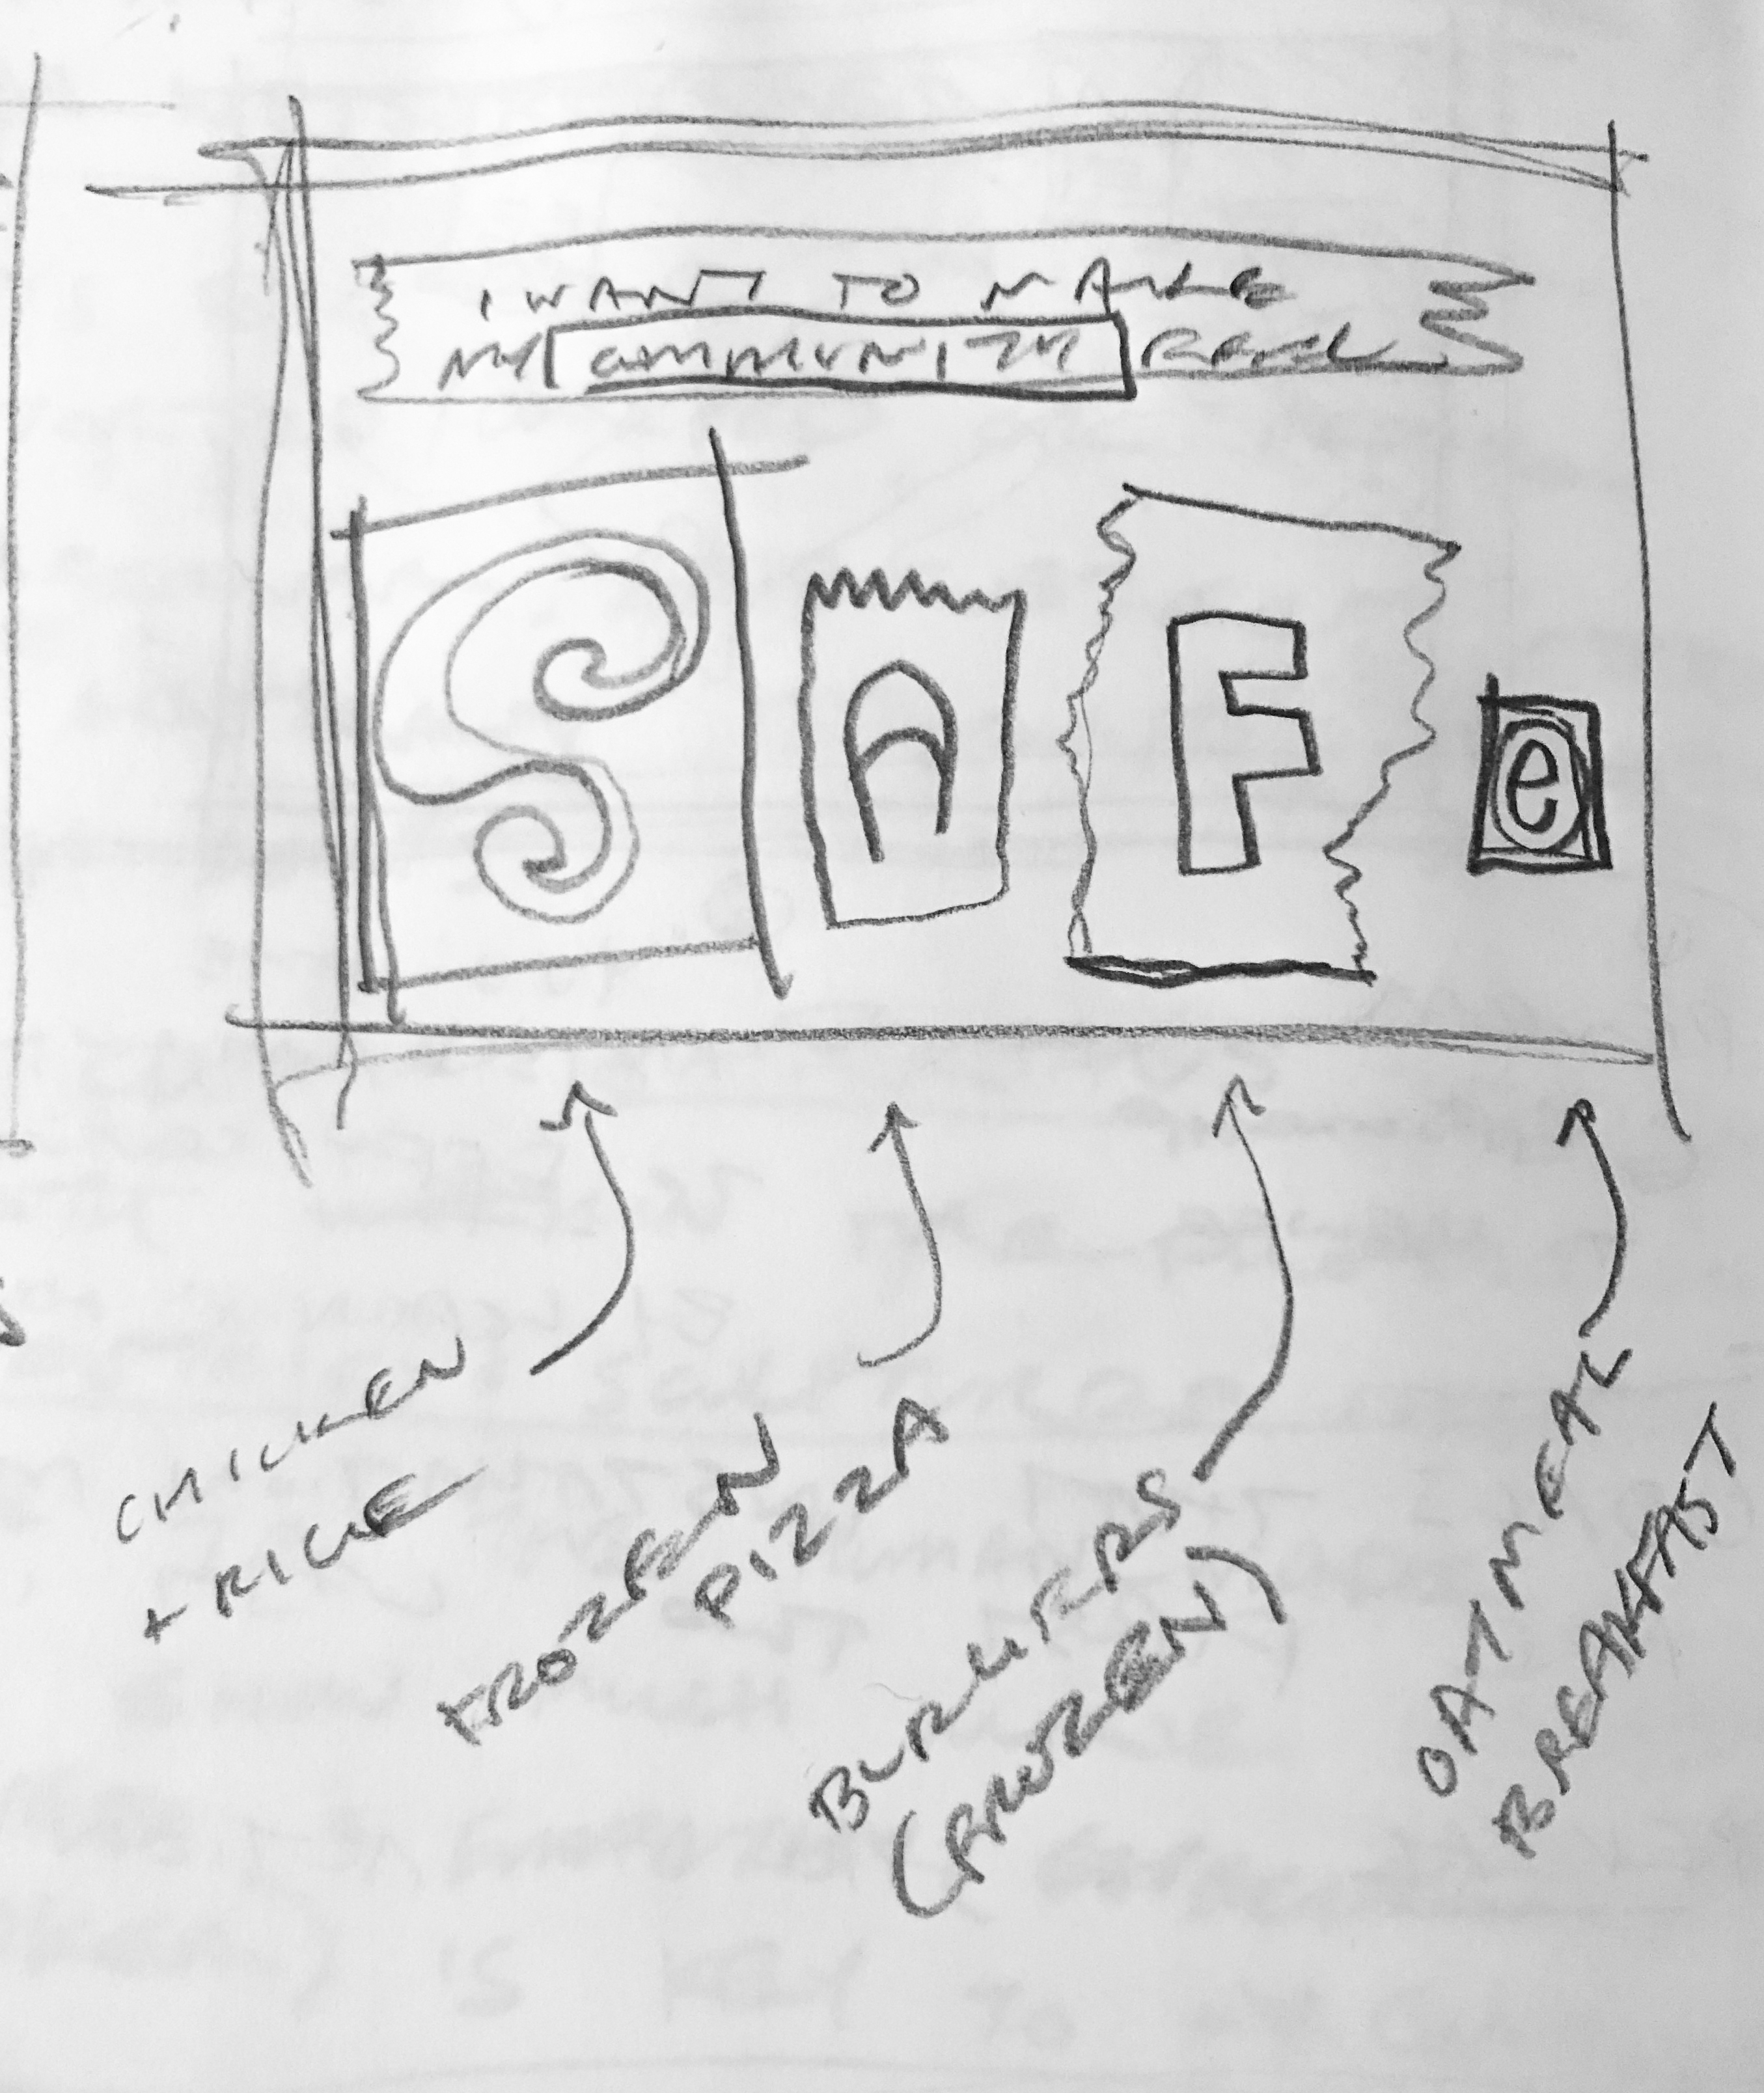 I WANT TO MAKE
MY COMMUNITY FEEL
SAFe
CHICKEN
+ RICE
FROZEN
PIZZA
BURGERS
(FROZEN)
OATMEAL
BREAKFAST